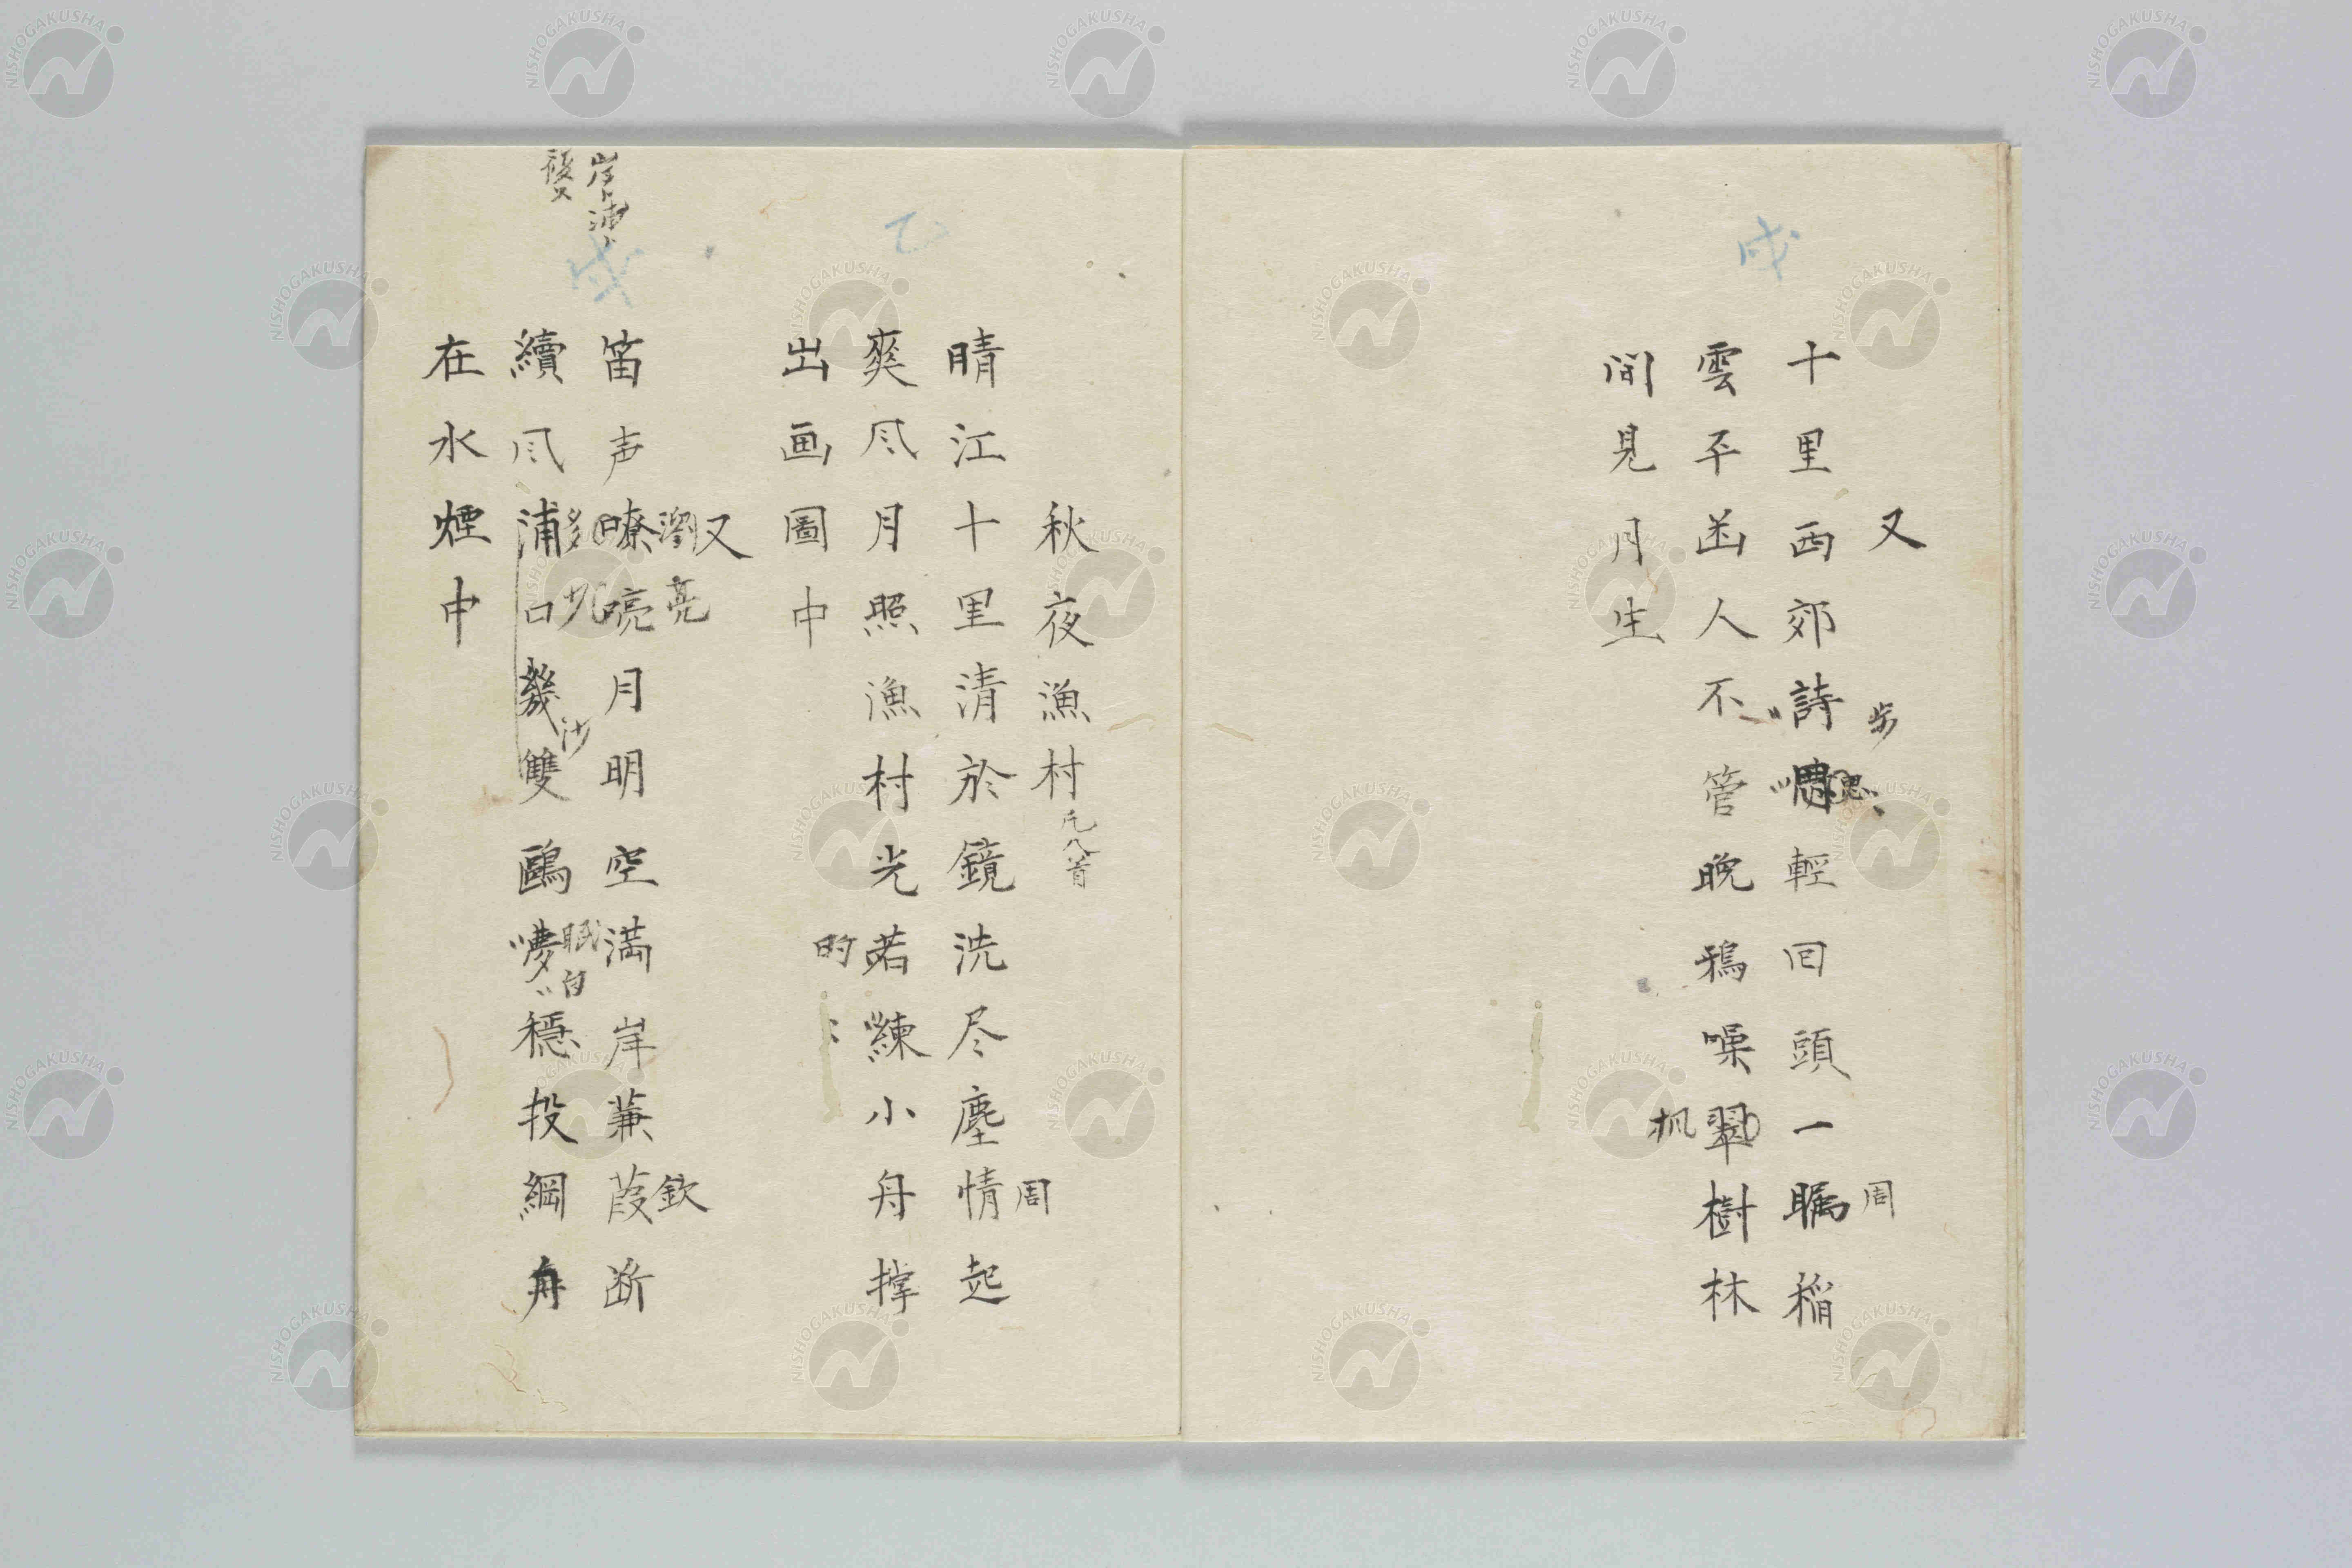 戌
又
十里西郊詩思輕回頭一矚稲
歩
周
雲平函人不管晩鴉噪翠樹林
楓
間見月生
乙
秋夜漁村
凡八首
晴江十里清於鏡洗尽塵情起
周
爽风月照漁村光若練小舟撑
的
出画圖中
又
瀏亮
笛声嘹喨月明空満岸蒹葭断
欽
續风浦口幾雙鷗夢穏投綱舟
沙
眠自
在水煙中
岸ト浦ト
複ス
NISHOGAKUSHA